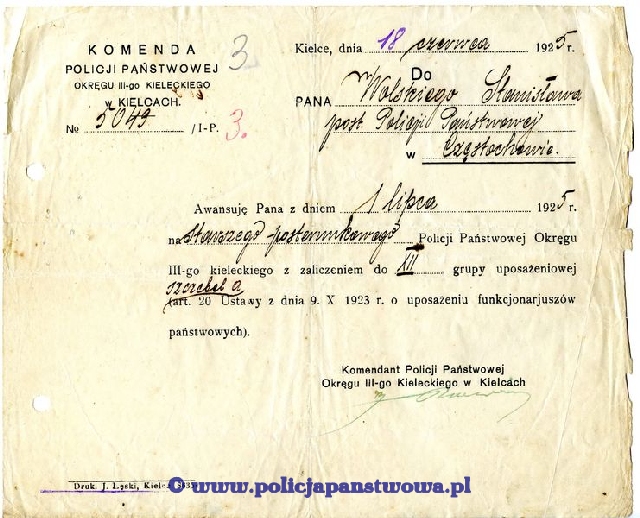 KOMENDA
POLICJI PAŃSTWOWEJ
OKRĘGU III-go KIELECKIEGO
w KIELCACH.
№ 5049 /I-P. 3.
3
Kielce, dnia 18 czerwca 1925 r.
Do
PANA Wolskiego Stanisława
post. Policji Państwowej
w Częstochowie.
Awansuję Pana z dniem 1 lipca 1925 r.
na starszego posterunkowego Policji Państwowej Okręgu
III-go kieleckiego z zaliczeniem do XII grupy uposażeniowej
szczebel a
(art. 20 Ustawy z dnia 9. X 1923 r. o uposażeniu funkcjonarjuszów
państwowych).
Komendant Policji Państwowej
Okręgu III-go Kieleckiego w Kielcach
Druk. J. Łęski, Kielce
© www.policjapanstwowa.pl